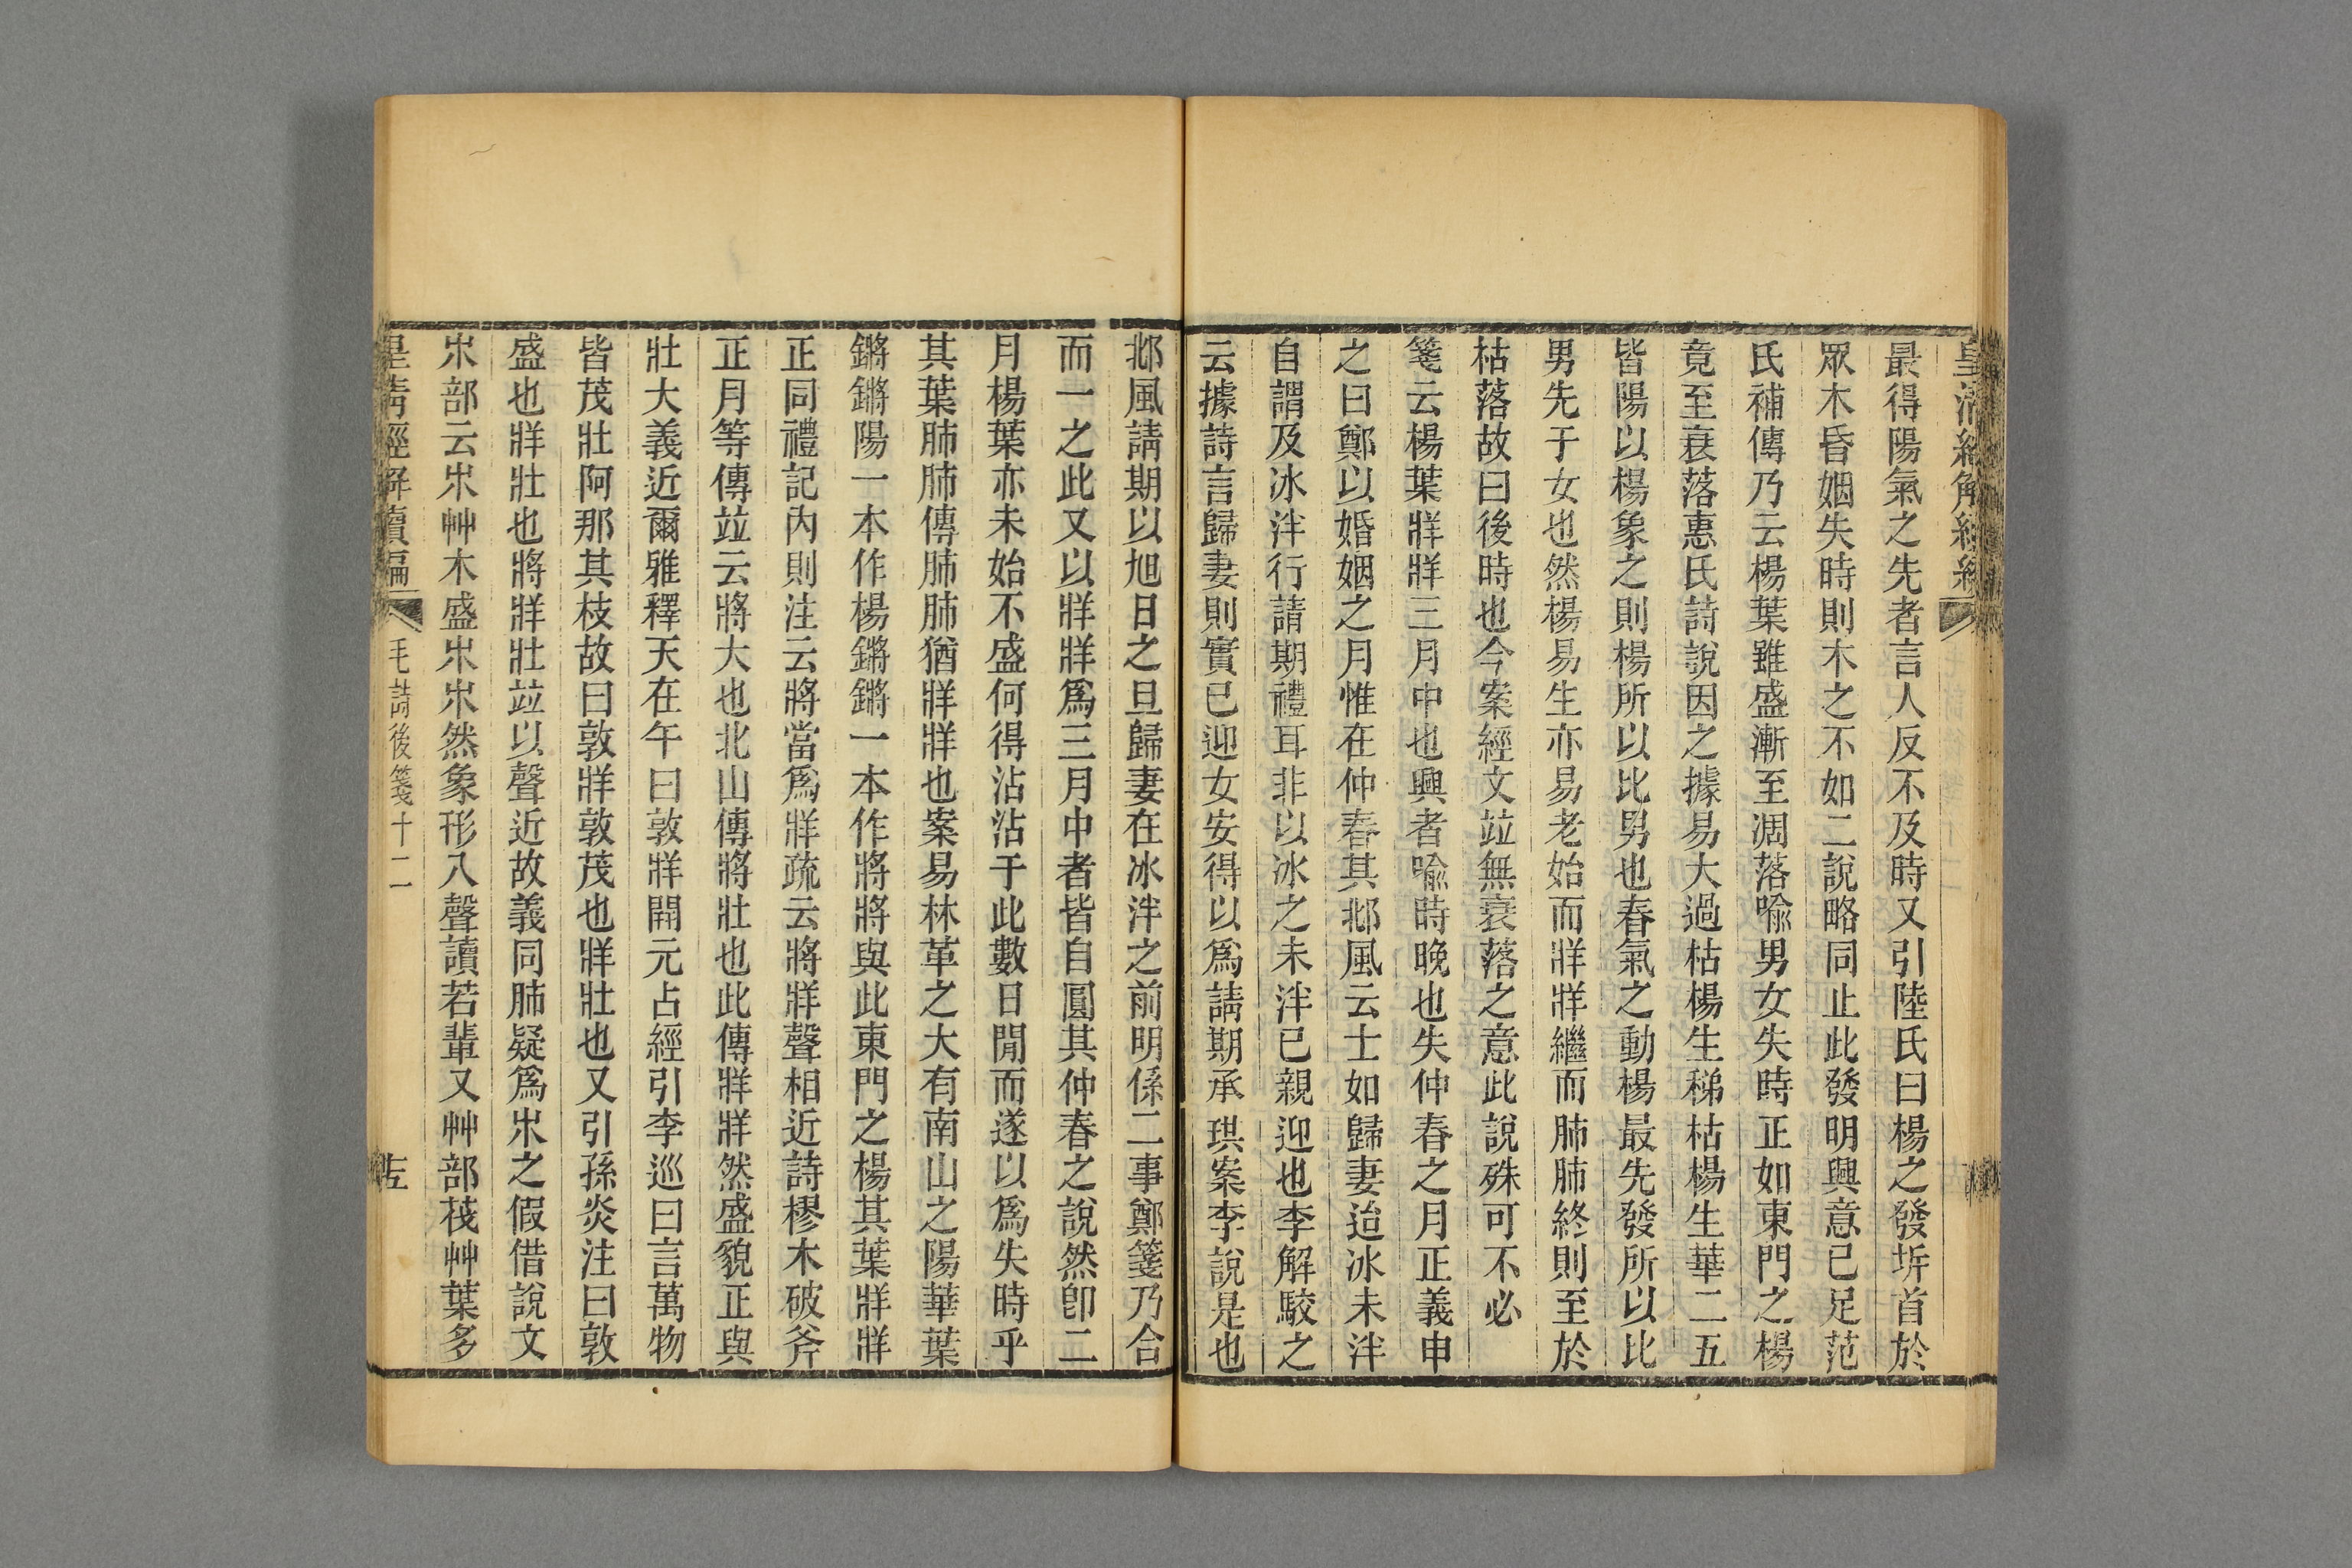 最得陽氣之先者言人反不及時又引陸氏曰楊之發坼首於
眾木昏姻失時則木之不如二說略同止此發明興意已足范
氏補傳乃云楊葉雖盛漸至凋落喩男女失時正如東門之楊
竟至衰落惠氏詩說因之據易大過枯楊生稊枯楊生華二五
皆陽以楊象之則楊所以比男也春氣之動楊最先發所以比
男先于女也然楊易生亦易老始而牂牂繼而肺肺終則至於
枯落故曰後時也今案經文竝無衰落之意此說殊可不必
箋云楊葉牂牂三月中也興者喩時晚也失仲春之月正義申
之曰鄭以婚姻之月惟在仲春其邶風云士如歸妻迨冰未泮
自謂及冰泮行請期禮耳非以冰之未泮已親迎也李解駮之
云據詩言歸妻則實已迎女安得以爲請期承珙案李說是也
邶風請期以旭日之旦歸妻在冰泮之前明係二事鄭箋乃合
而一之此又以牂牂爲三月中者皆自圓其仲春之說然卽二
月楊葉亦未始不盛何得沾沾于此數日閒而遂以爲失時乎
其葉肺肺傳肺肺猶牂牂也案易林革之大有南山之陽華葉
鏘鏘陽一本作楊鏘鏘一本作將將與此東門之楊其葉牂牂
正同禮記內則注云將當爲牂疏云將牂聲相近詩樛木破斧
正月等傳竝云將大也北山傳將壯也此傳牂牂然盛貌正與
壯大義近爾雅釋天在午曰敦牂開元占經引李巡曰言萬物
皆茂壯阿那其枝故曰敦牂敦茂也牂壯也又引孫炎注曰敦
盛也牂壯也將牂壯竝以聲近故義同肺疑爲𣎵之假借說文
𣎵部云𣎵艸木盛𣎵𣎵然象形八聲讀若輩又艸部茷艸葉多
皇淸經解續編
毛詩後箋十二